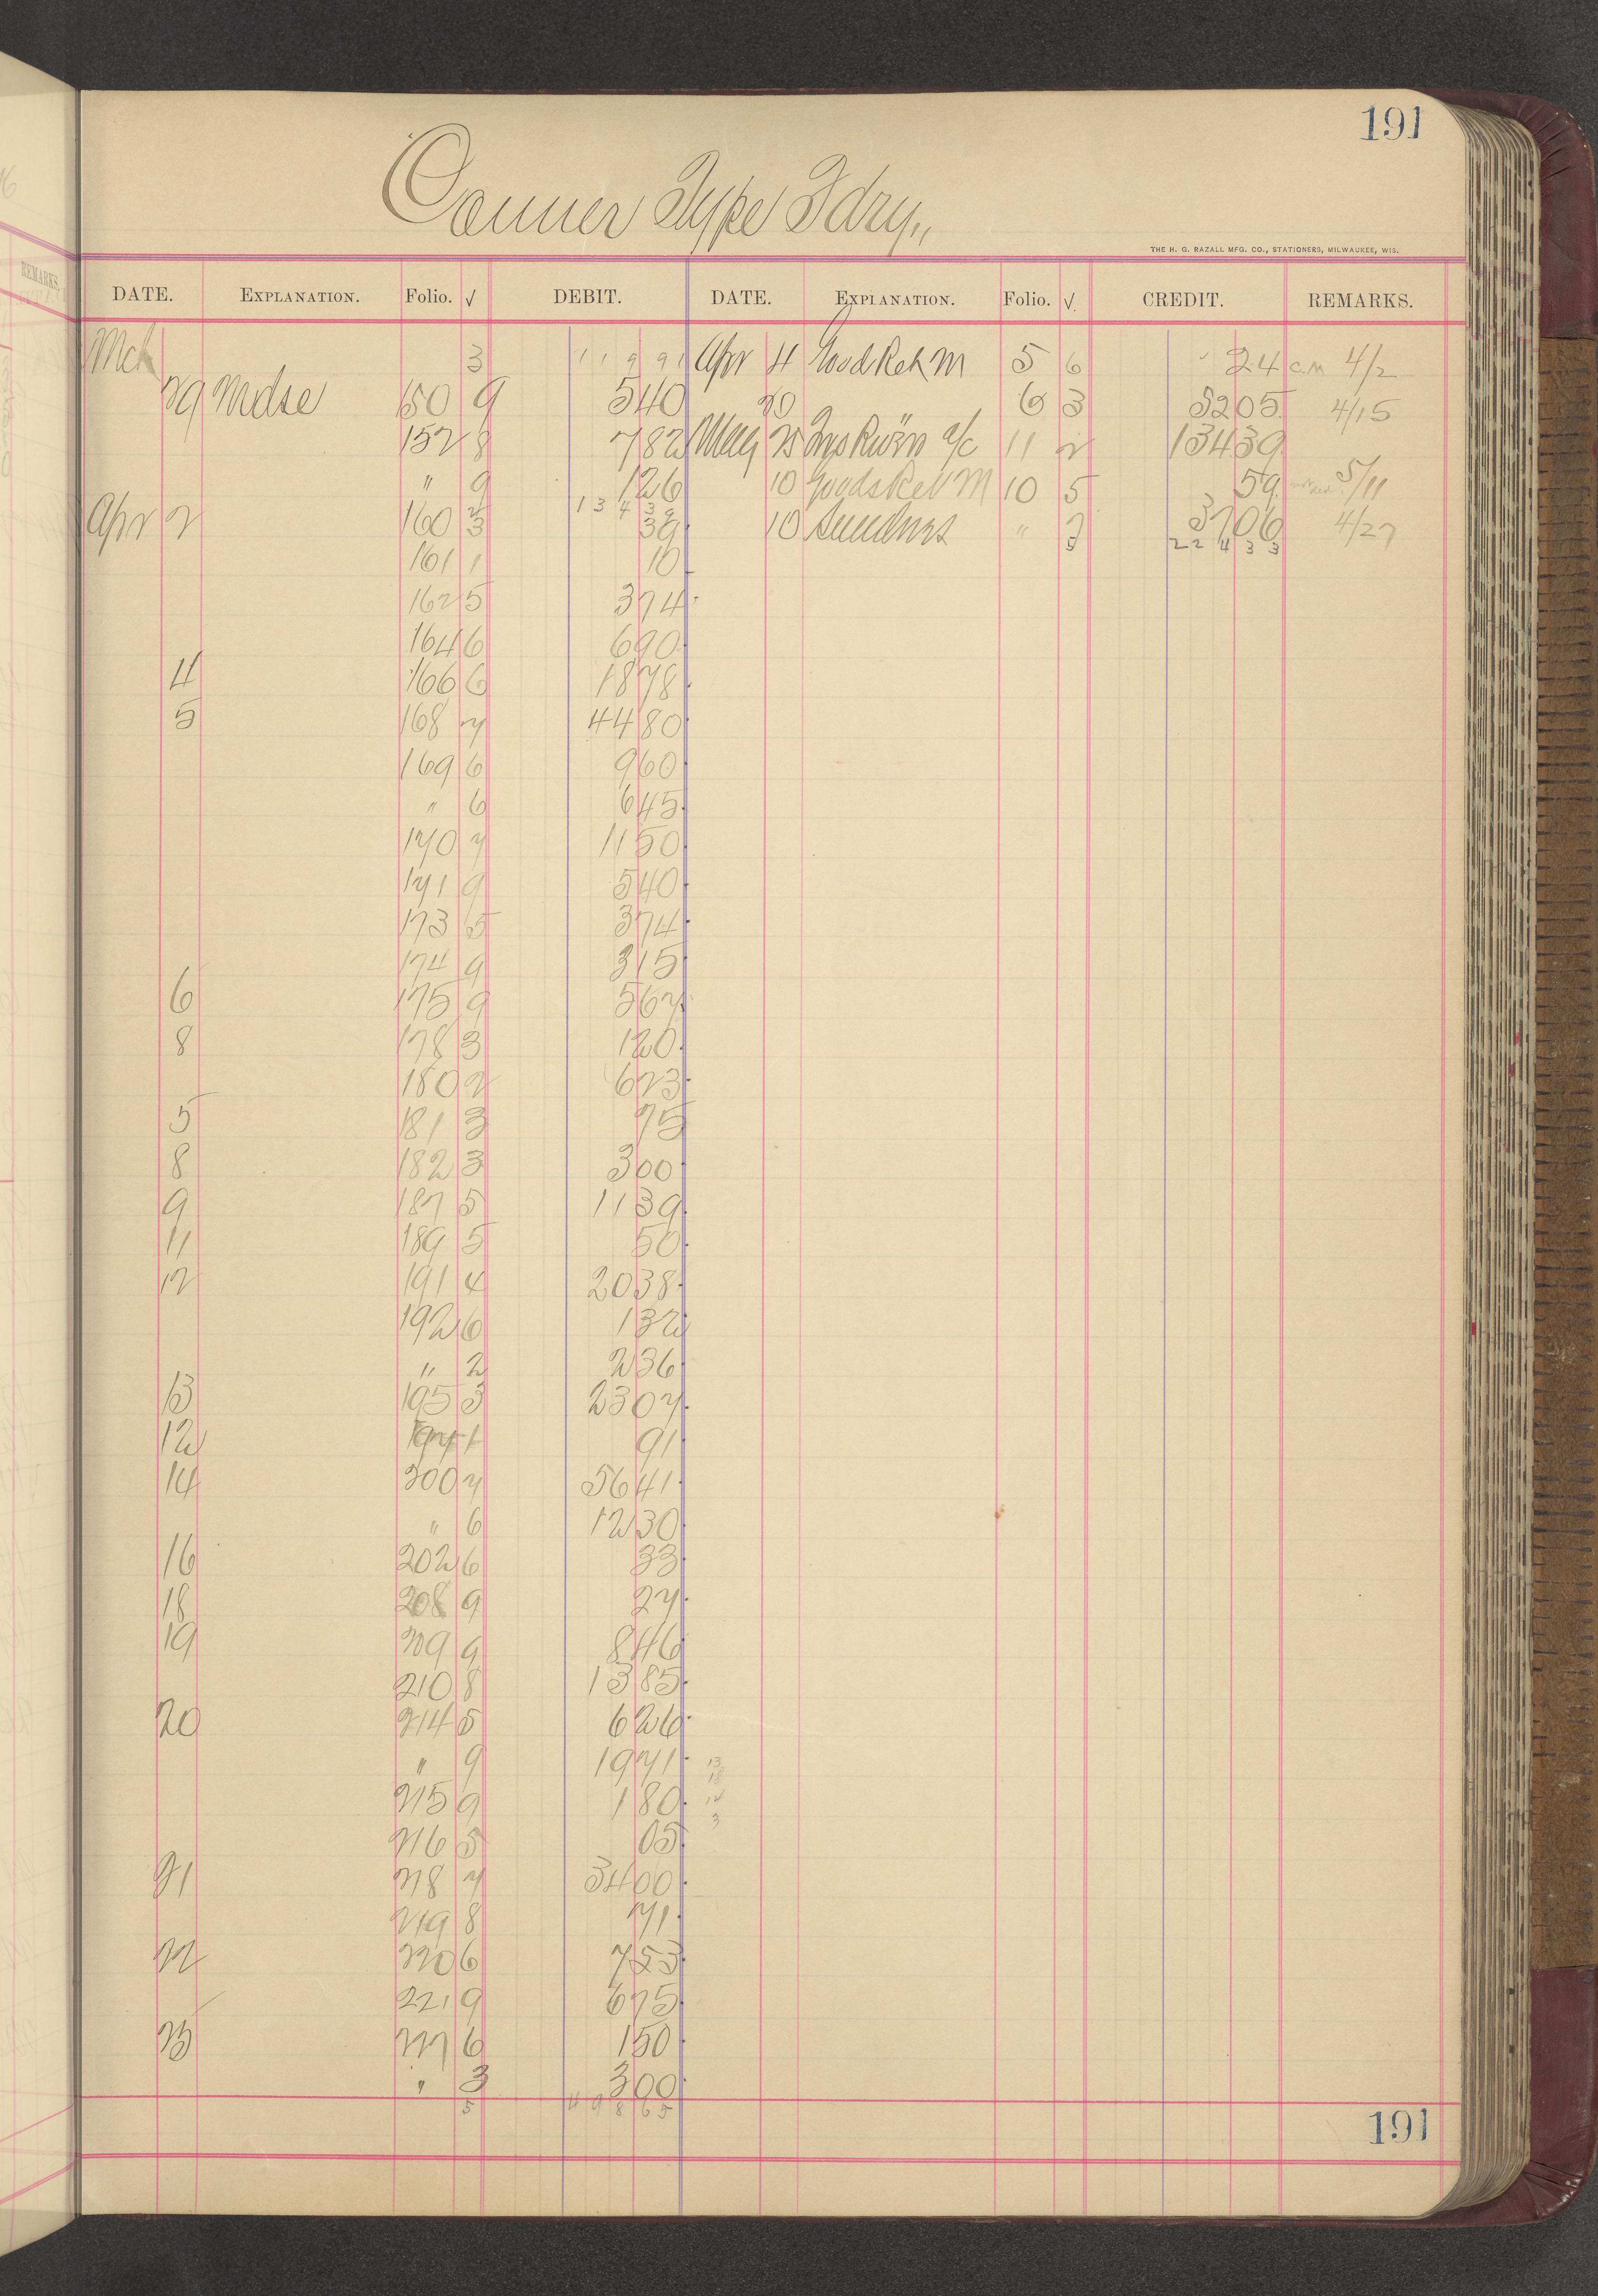 191
Conner Type Fdry,,
THE H. G. RAZALL MFG. CO., STATIONERS, MILWAUKEE, WIS.
DATE. EXPLANATION. Folio. √ DEBIT. DATE. EXPLANATION. Folio. √. CREDIT. REMARKS.
Mch 3 1 1 9 9 1 Apr 4 Goods Ret M 5 6 24 C.M 4/2
29 Mdse 150 9 5 40 20 6 3 52 05 4/15
152 8 7 82 May 25 a/c 11 2 134 39
" 9 1 26 10 Goods Ret M 10 5 59 5/11
1 3 4 3 9
Apr 2 160 3 39 10 Sundries " 7 37 06 4/27
5 2 2 4 3 3
161 1 10
162 5 3 74
164 6 6 90
4 166 6 18 78
5 168 7 44 80
169 6 9 60
" 6 6 45
170 7 11 50
171 9 5 40
173 5 3 74
174 9 3 15
6 175 9 5 67
8 178 3 1 20
180 2 6 23
5 181 3 75
8 182 3 3 00
9 187 5 11 39
11 189 5 50
12 191 4 20 38
192 6 1 32
" 2 2 36
13 195 3 23 07
12 197 1 91
14 200 7 56 41
" 6 12 30
16 202 6 33
18 208 9 27
19 209 9 8 46
210 8 13 85
20 214 5 6 26
" 9 19 71 13
18
215 9 1 80 12
3
216 5 05
21 218 7 34 00
219 8 71
22 220 6 7 53
221 9 6 75
23 227 6 1 50
" 3 3 00
5 4 9 8 6 5
191